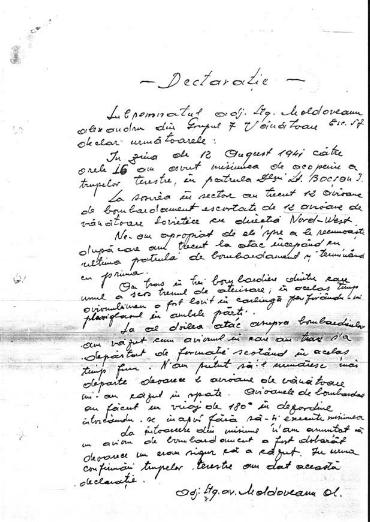 – Declarație –
Subsemnatul adj. stg. Moldoveanu
Alexandru din Grupul 7 Vânătoare Esc. 57
declar următoarele:
În ziua de 12 August 1941 către
orele 16 am avut misiunea de acoperire a
trupelor terestre, în patrula Slt. Bocșan I.
La sosirea în sector au trecut 12 avioane
de bombardament escortate de 12 avioane de
vânătoare sovietice cu direcția Nord-West.
Ne-am apropiat de ele spre a le recunoaște
după care am trecut la atac începând cu
ultima patrulă de bombardament și terminând
cu prima.
Am tras în trei bombardiere dintre care
unul a scos trenul de aterisare, în acelaș timp
avionul meu a fost lovit în carlingă perforându-i
plexiglasul în ambele părți.
La al doilea atac asupra bombardierelor
am văzut cum avionul în care am tras s'a
depărtat de formație scoțând în acelaș
timp fum. N'am putut să-l urmăresc mai
departe deoarece 2 avioane de vânătoare
mi-au căzut în spate. Avioanele de bombardament
au făcut un viraj de 180° în dezordine
întorcându-se înapoi fără să-și execute misiunea
La întoarcere din misiune n'am anunțat că
un avion de bombardament a fost doborât
deoarece nu eram sigur că a căzut. În urma
confirmării trupelor terestre am dat această
declarație.
Adj. stg. av. Moldoveanu Al.